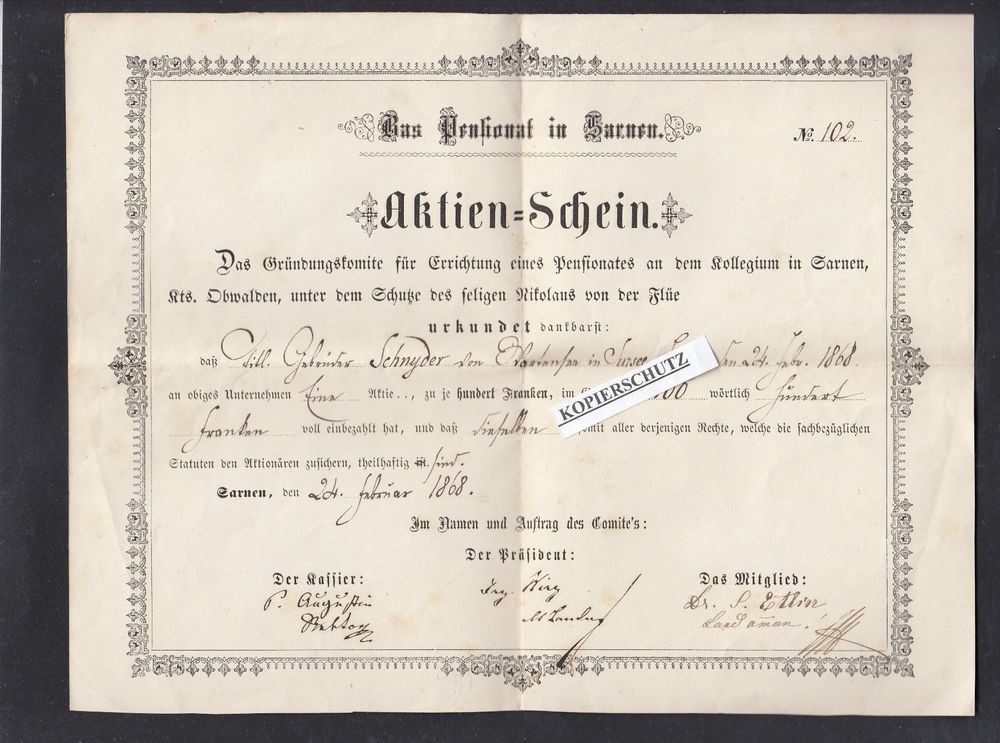 Das Pensionat in Sarnen.
No. 102.
Aktien=Schein.
Das Gründungskomite für Errichtung eines Pensionates an dem Kollegium in Sarnen,
Kts. Obwalden, unter dem Schutze des seligen Nikolaus von der Flüe
urkundet dankbarst:
daß Titl. Gebrüder Schnyder von Wartensee in Sursee den 24. Febr. 1868
an obiges Unternehmen Eine Aktie.., zu je hundert Franken, im 100 wörtlich Hundert
Franken voll einbezahlt hat, und daß dieselben somit aller derjenigen Rechte, welche die fachbezüglichen
Statuten den Aktionären zusichern, theilhaftig ist. sind.
Sarnen, den 24. Februar 1868.
KOPIERSCHUTZ
Im Namen und Auftrag des Comite's:
Der Präsident:
Der Kassier:
Das Mitglied:
P. Augustin
Wirz
Dr. S. Etlin
Landaman.